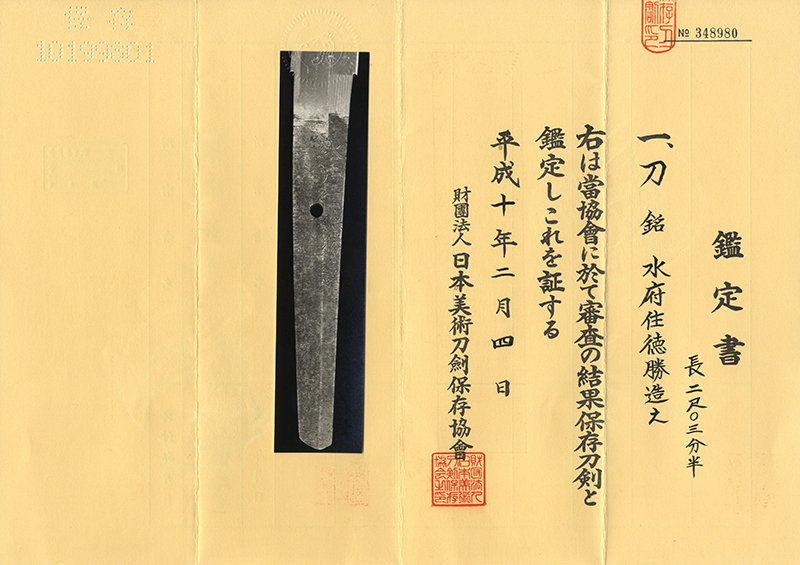 保存
10199801
№ 348980
鑑定書
一、刀 銘 水府住徳勝造之
長二尺〇三分半
右は當協會に於て審査の結果保存刀剣と
鑑定しこれを証する
平成十年二月四日
財團法人日本美術刀劍保存協會